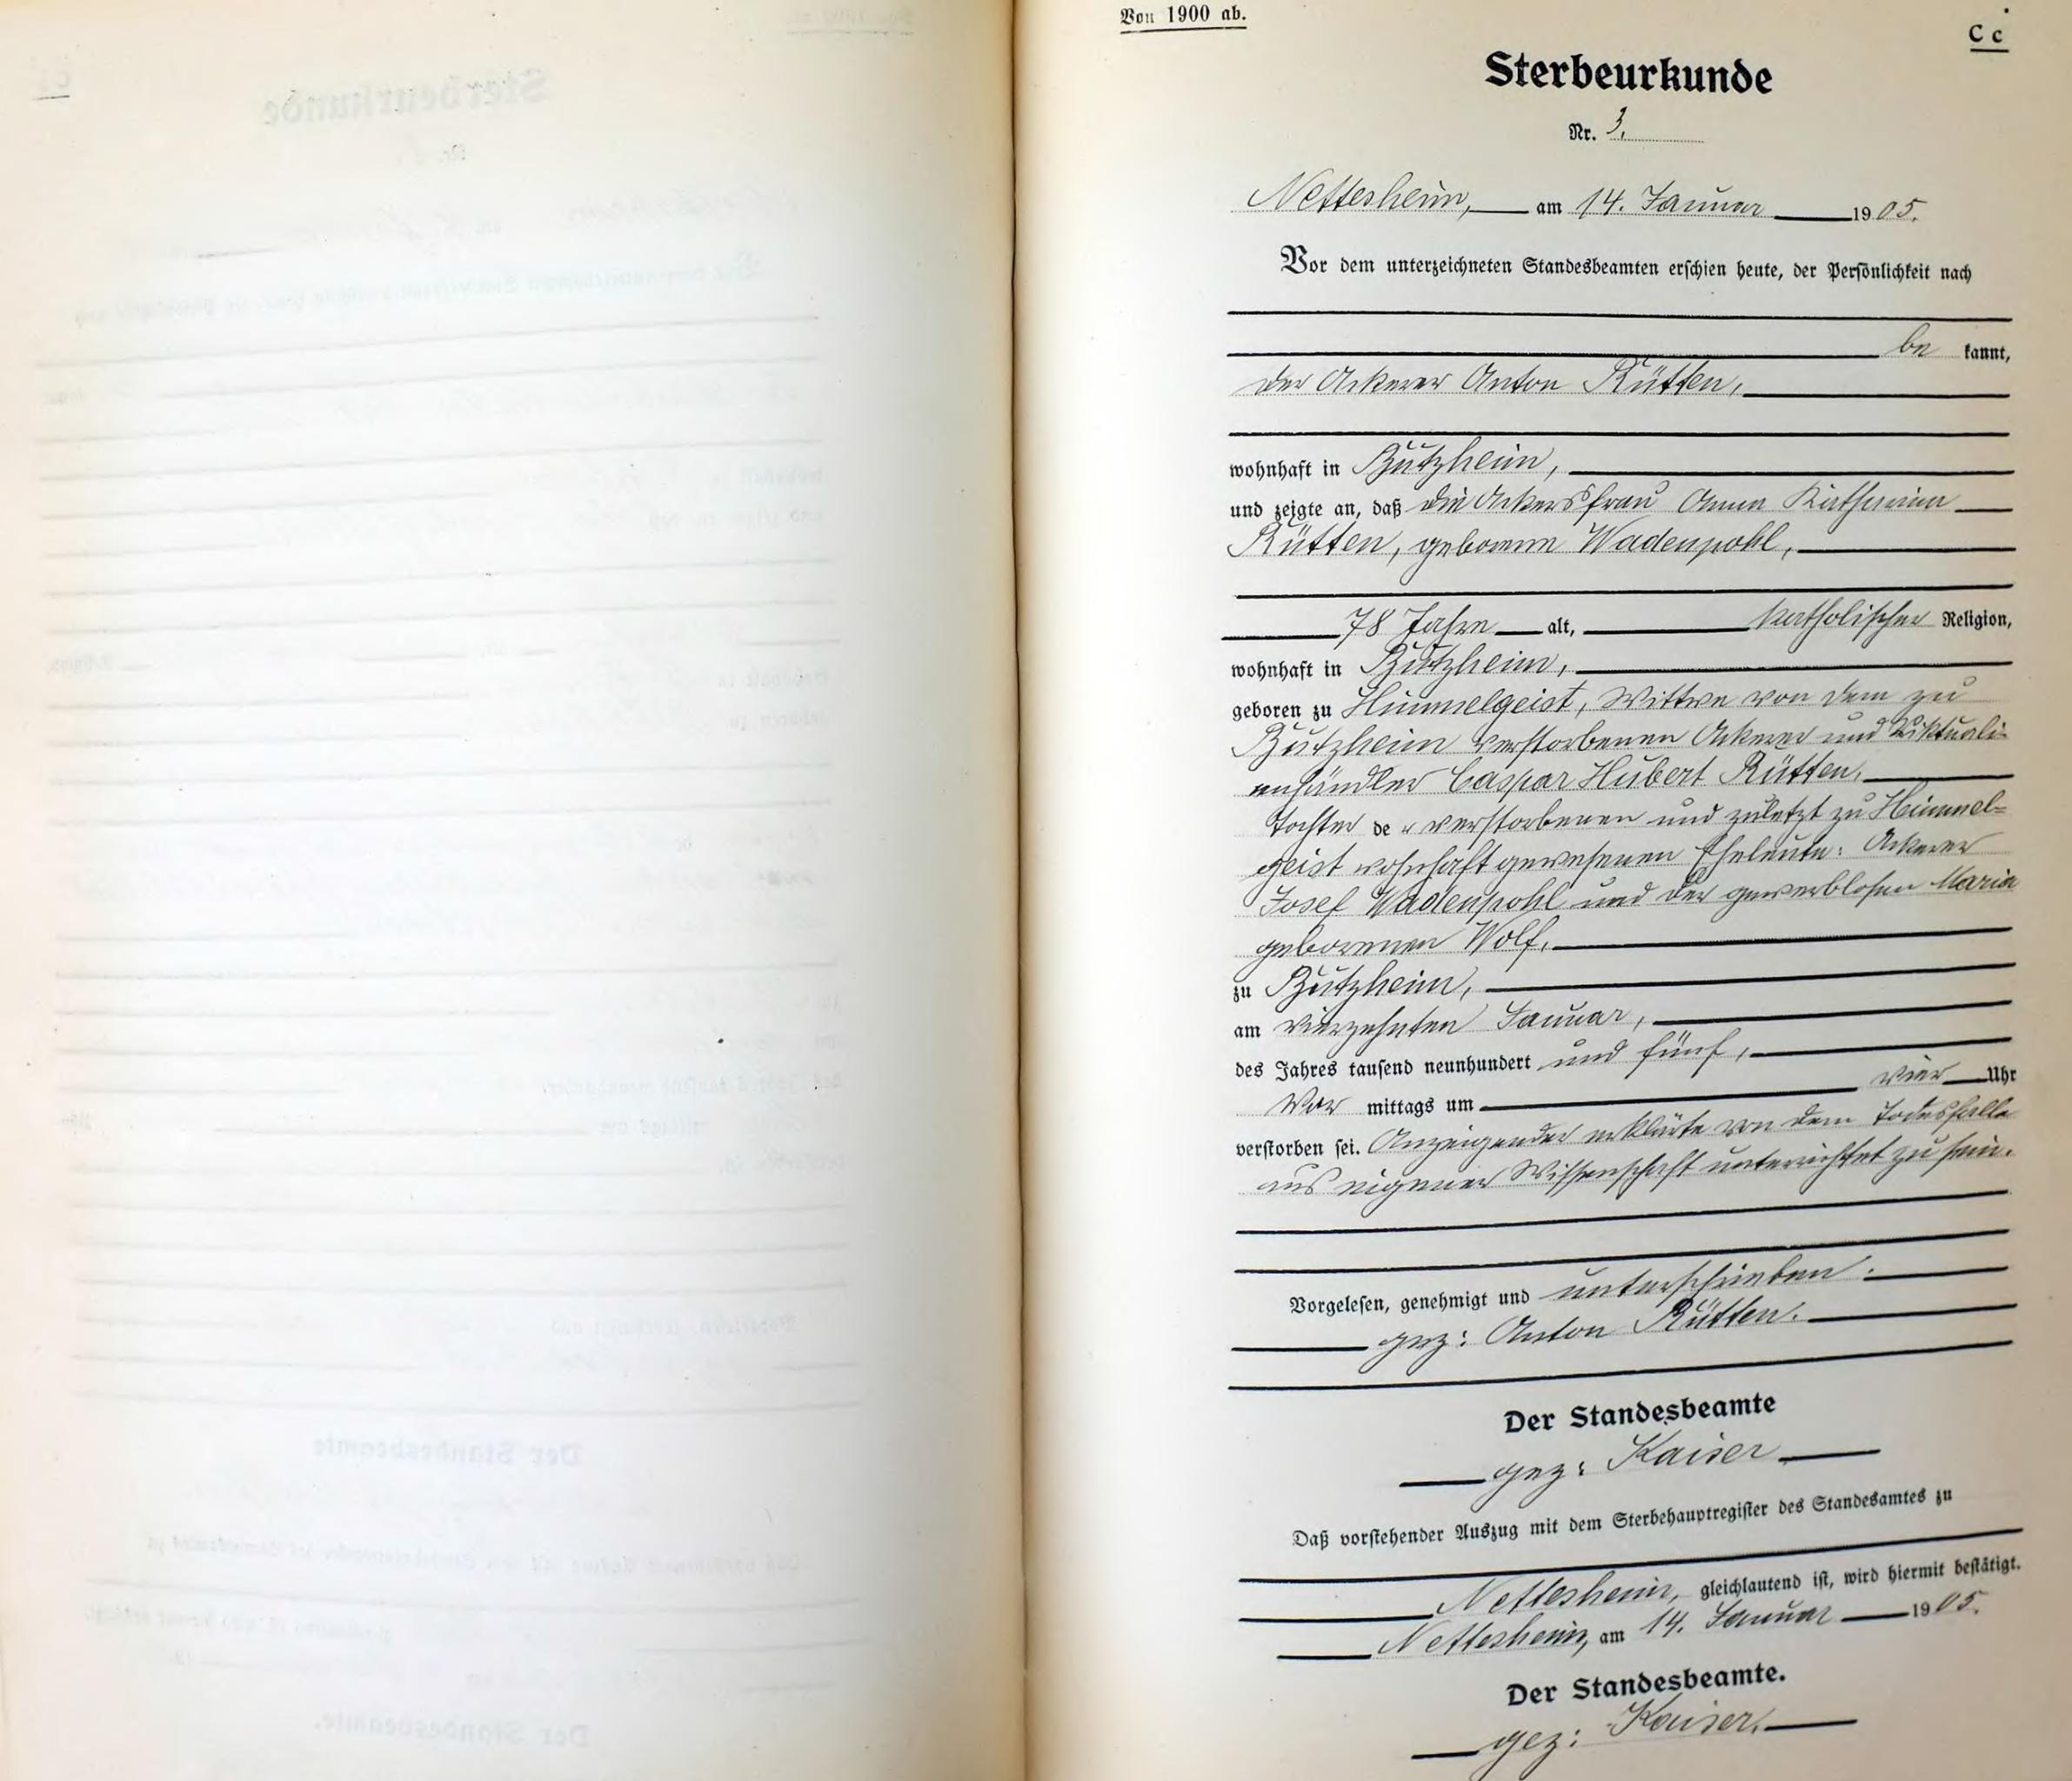 Von 1900 ab.
C c
Sterbeurkunde
Nr. 3.
Nettesheim, am 14. Januar 1905.
Vor dem unterzeichneten Standesbeamten erschien heute, der Persönlichkeit nach
be kannt,
der Ackerer Anton Rütten,
wohnhaft in Butzheim,
und zeigte an, daß die Ackersfrau Anna Katharina
Rütten, geborene Wadenpohl,
78 Jahre alt, katholischer Religion,
wohnhaft in Butzheim,
geboren zu Himmelgeist, Wittwe von dem zu
Butzheim verstorbenen Ackerer und Viktuali-
enhändler Caspar Hubert Rütten,
Tochter der verstorbenen und zuletzt zu Himmel-
geist wohnhaft gewesenen Eheleute: Ackerer
Josef Wadenpohl und der gewerblosen Maria
geborenen Wolf,
zu Butzheim,
am vierzehnten Januar,
des Jahres tausend neunhundert und fünf,
Vor mittags um vier Uhr
verstorben sei. Anzeigender erklärte von dem Todesfalle
aus eigener Wissenschaft unterrichtet zu sein.
Vorgelesen, genehmigt und unterschrieben:
gez: Anton Rütten.
Der Standesbeamte
gez: Kaiser
Daß vorstehender Auszug mit dem Sterbehauptregister des Standesamtes zu
Nettesheim, gleichlautend ist, wird hiermit bestätigt.
Nettesheim, am 14. Januar 1905.
Der Standesbeamte.
gez: Kaiser.